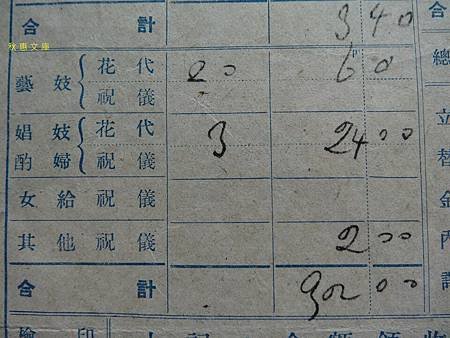 合計 340
秋惠文庫
合
總
藝妓 花代 20 60
祝儀
娼妓 花代 3 2400
酌婦 祝儀
女給 祝儀
其他 祝儀 200
合計 00
立替金內